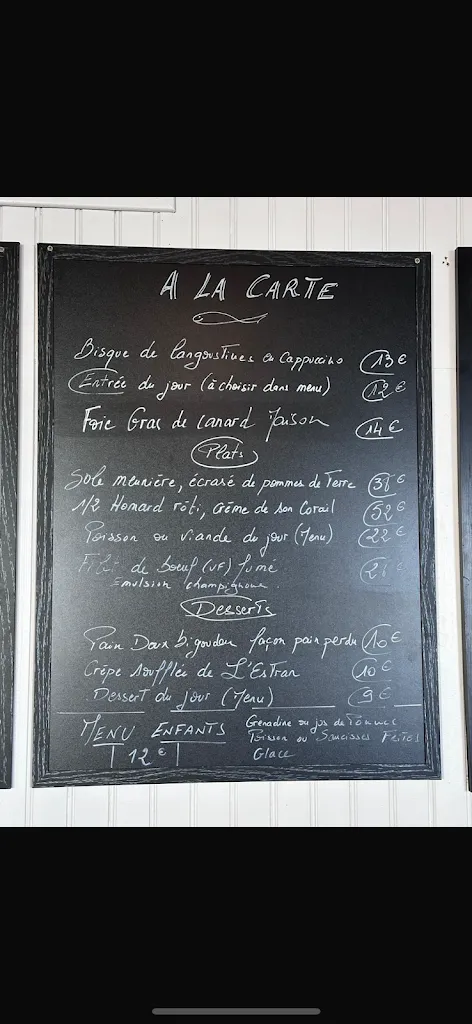 A LA CARTE
Bisque de langoustines en cappuccino 13€
Entrée du jour (à choisir dans menu) 12€
Foie Gras de canard Maison 14€
Plats
Sole meunière, écrasé de pommes de Terre
1/2 Homard rôti, crème de son Corail 52€
Poisson ou viande du jour (Menu) 22€
Filet de boeuf (VF) fumé
Emulsion champignons.
Desserts
Pain Doux bigouden façon pain perdu 10€
Crêpe soufflée de L'Estran 10€
Dessert du jour (Menu) 9€
MENU ENFANTS
12€
Grenadine ou jus de Pomme
Poisson ou Saucisses Frites
Glace